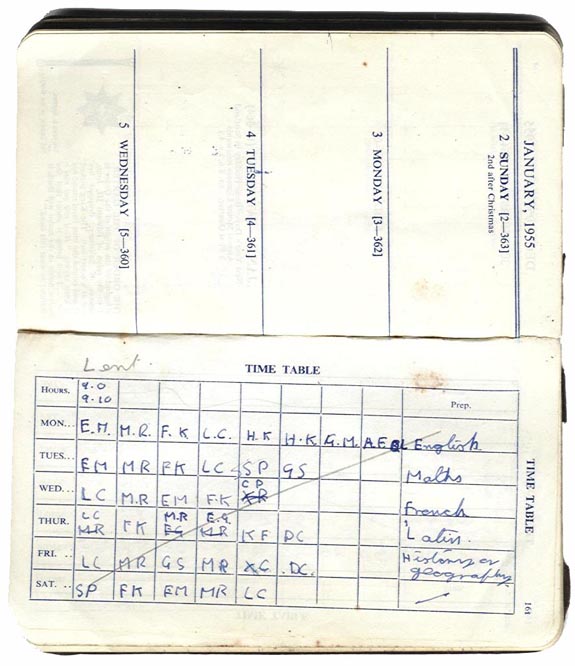 JANUARY, 1955
2 SUNDAY [2—363]
2nd after Christmas
3 MONDAY [3—362]
4 TUESDAY [4—361]
5 WEDNESDAY [5—360]
Lent.
TIME TABLE
HOURS. 9.0 9.10 Prep.
MON... E.M. M.R. F.K L.C. H.K H.K G.M. A.F. English
TUES... EM MR FK LC SP GS Maths
WED... LC M.R EM F.K CP French
THUR. LC MR FK M.R EG E.G. MR KF DC Latin.
FRI. .. LC MR GS MR DC. History or geography.
SAT. .. SP FK EM MR LC
TIME TABLE
161